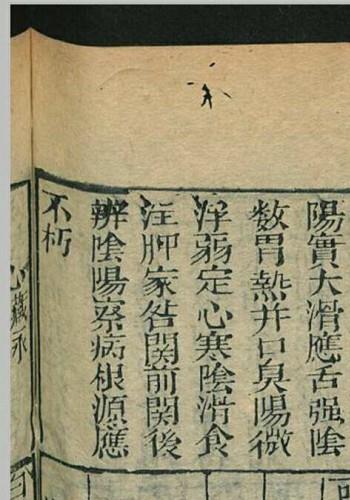 陽實大滑應舌强陰
数胃熱并口臭陽微
浮弱定心寒陰滑食
注脾家咎関前関後
辨陰陽察病根源應
不朽
心藏